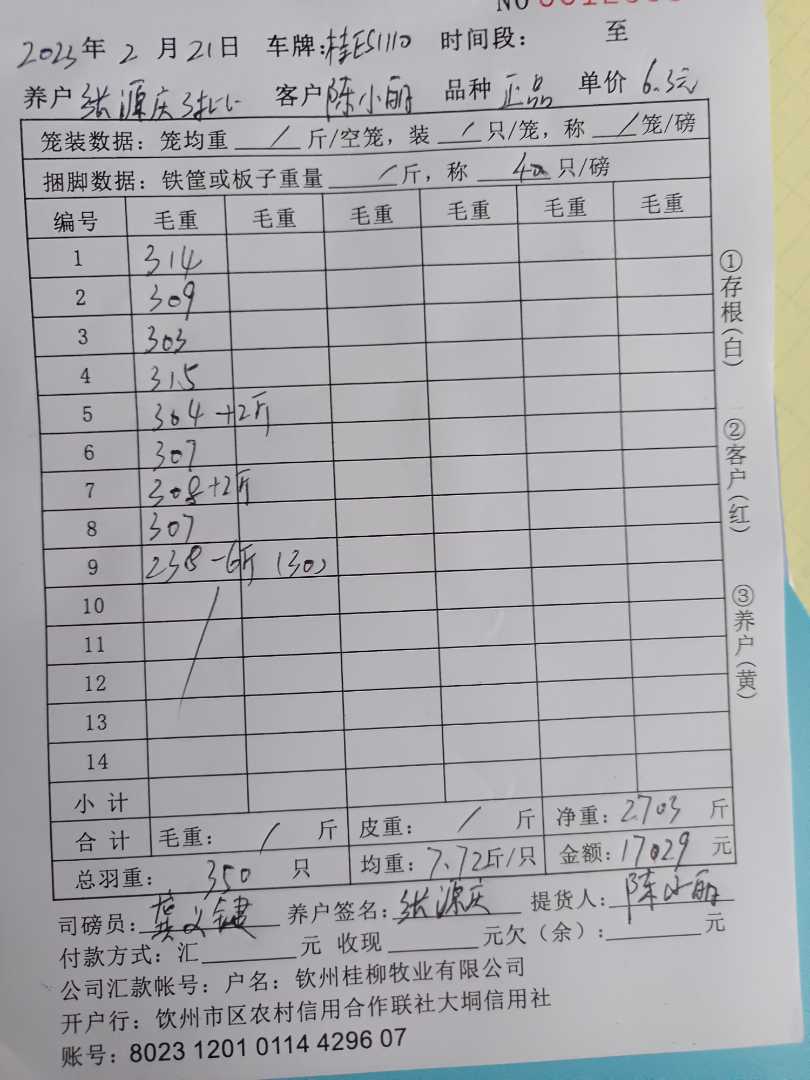 2023年2月21日 车牌:桂ES1110 时间段: 至
养户 张源庆 客户 陈小丽 品种 正品 单价 6.3元
笼装数据: 笼均重 / 斤/空笼, 装 / 只/笼, 称 / 笼/磅
捆脚数据: 铁筐或板子重量 / 斤, 称 40 只/磅
编号 毛重 毛重 毛重 毛重 毛重 毛重
1 314
2 309
3 303
4 315
5 304 +2斤
6 307
7 308+2斤
8 307
9 238-6斤 (30)
10
11
12
13
14
小计
合计 毛重: / 斤 皮重: / 斤 净重: 2703 斤
总羽重: 350 只 均重: 7.72斤/只 金额: 17029 元
①存根(白)
②客户(红)
③养户(黄)
司磅员: 龚义键 养户签名: 张源庆 提货人: 陈小丽
付款方式: 汇 元 收现 元欠(余): 元
公司汇款帐号: 户名: 钦州桂柳牧业有限公司
开户行: 钦州市区农村信用合作联社大垌信用社
账号: 8023 1201 0114 4296 07